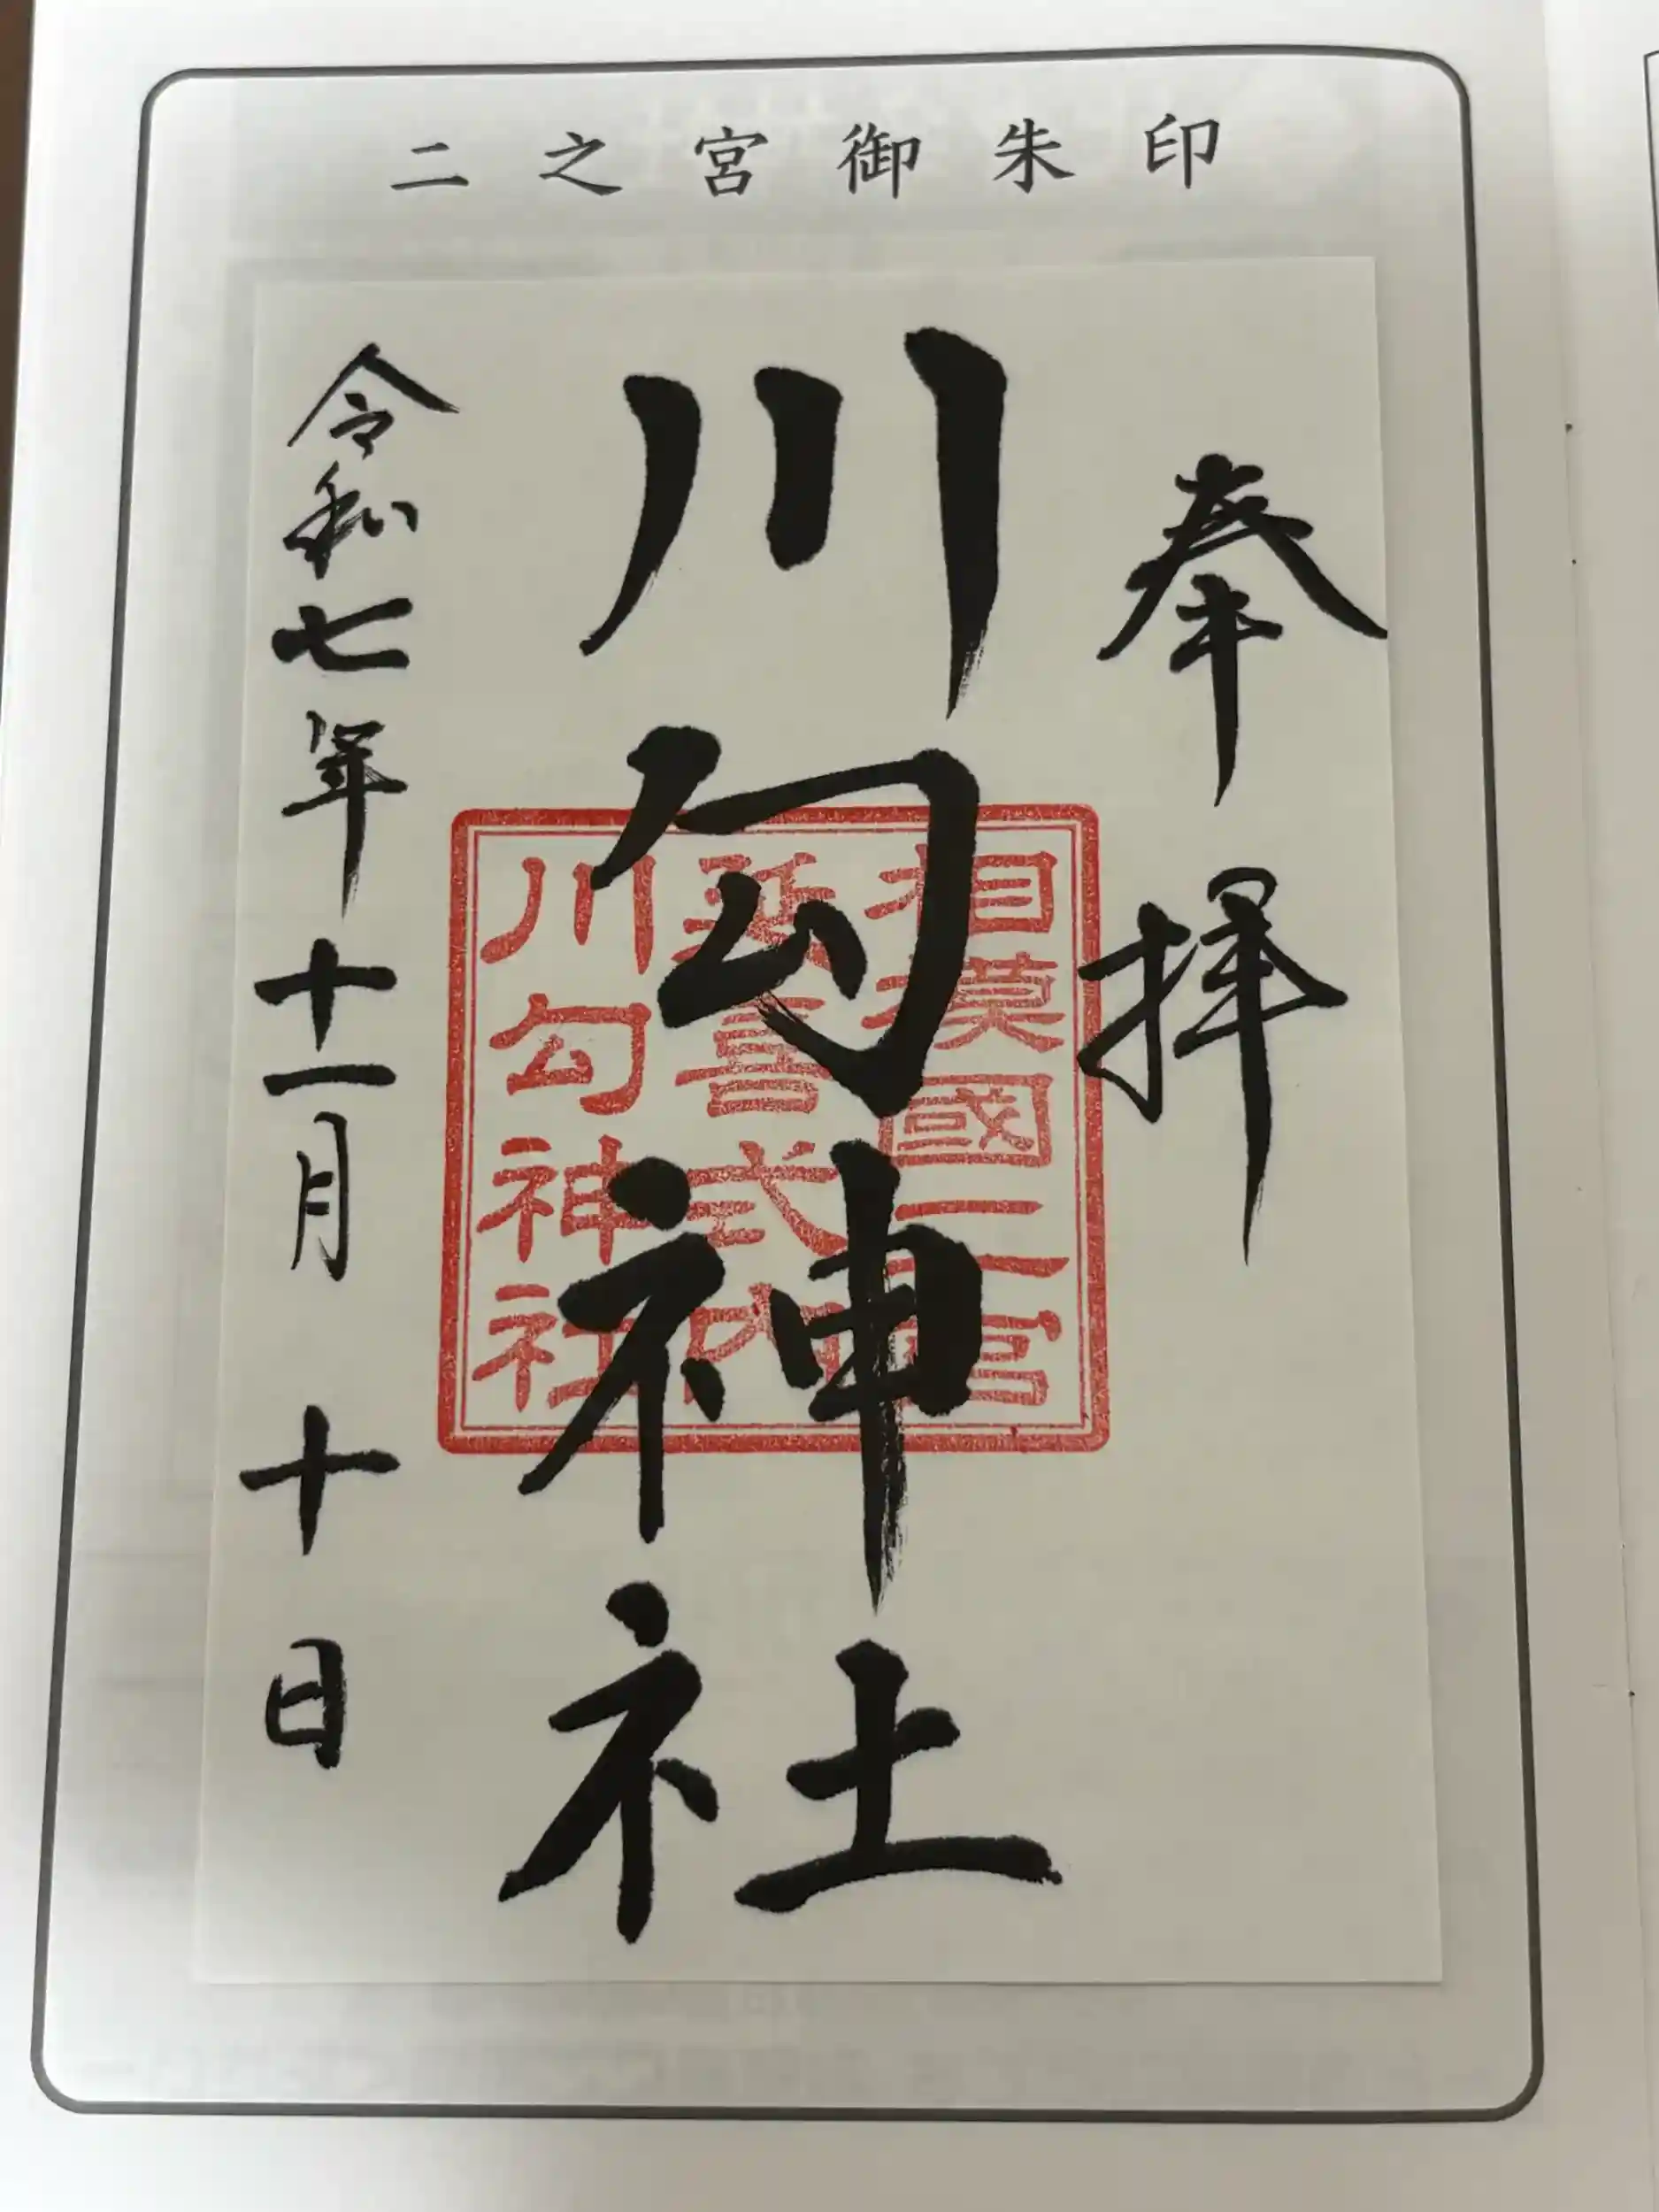 二之宮御朱印
奉拝
川勾神社
相模國二宮
延喜式内
川勾神社
令和七年十一月十日